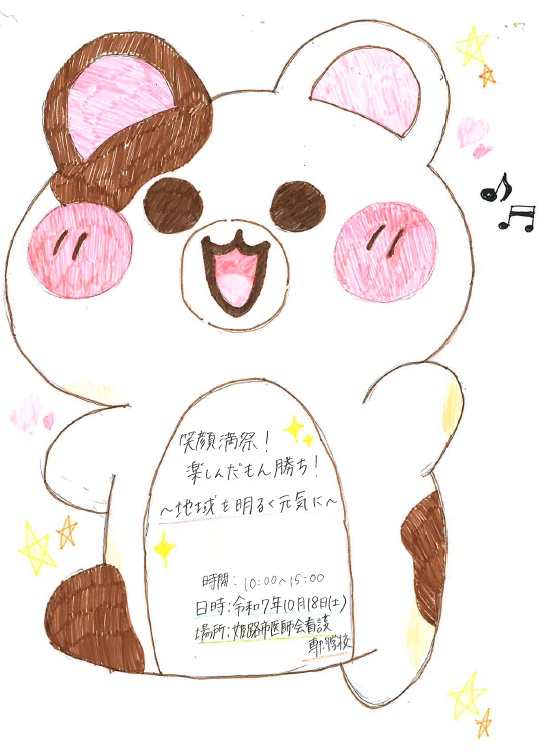 笑顔満祭！
楽しんだもん勝ち！
～地域を明るく元気に～
時間：10:00～15:00
日時：令和7年10月18日(土)
場所：姫路市医師会看護
専門学校